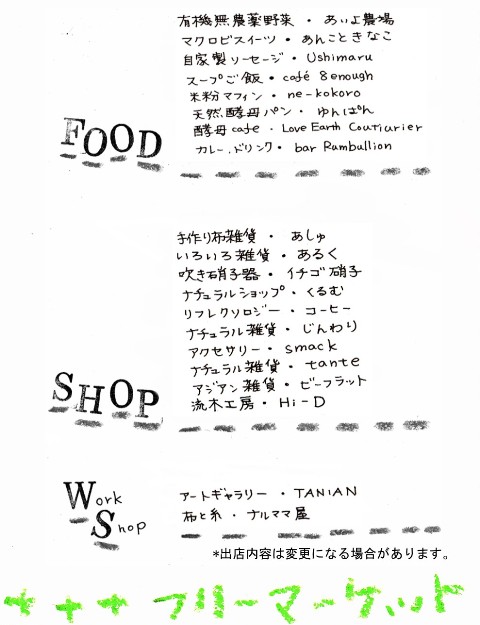 有機無農薬野菜・あいよ農場
マクロビスイーツ・あんこときなこ
自家製ソーセージ・Ushimaru
スープご飯・café 8enough
米粉マフィン・ne-kokoro
天然酵母パン・ゆんぱん
酵母cafe・Love Earth Coutiurier
カレー.ドリンク・bar Rumbullion
FOOD
手作り布雑貨・あしゅ
いろいろ雑貨・あるく
吹き硝子器・イチゴ硝子
ナチュラルショップ・くるむ
リフレクソロジー・コーヒー
ナチュラル雑貨・じんわり
アクセサリー・smack
ナチュラル雑貨・tante
アジアン雑貨・ビーフラット
流木工房・Hi-D
SHOP
Work
Shop
アートギャラリー・TANIAN
布と糸・ナルママ屋
*出店内容は変更になる場合があります。
+++フリーマーケット